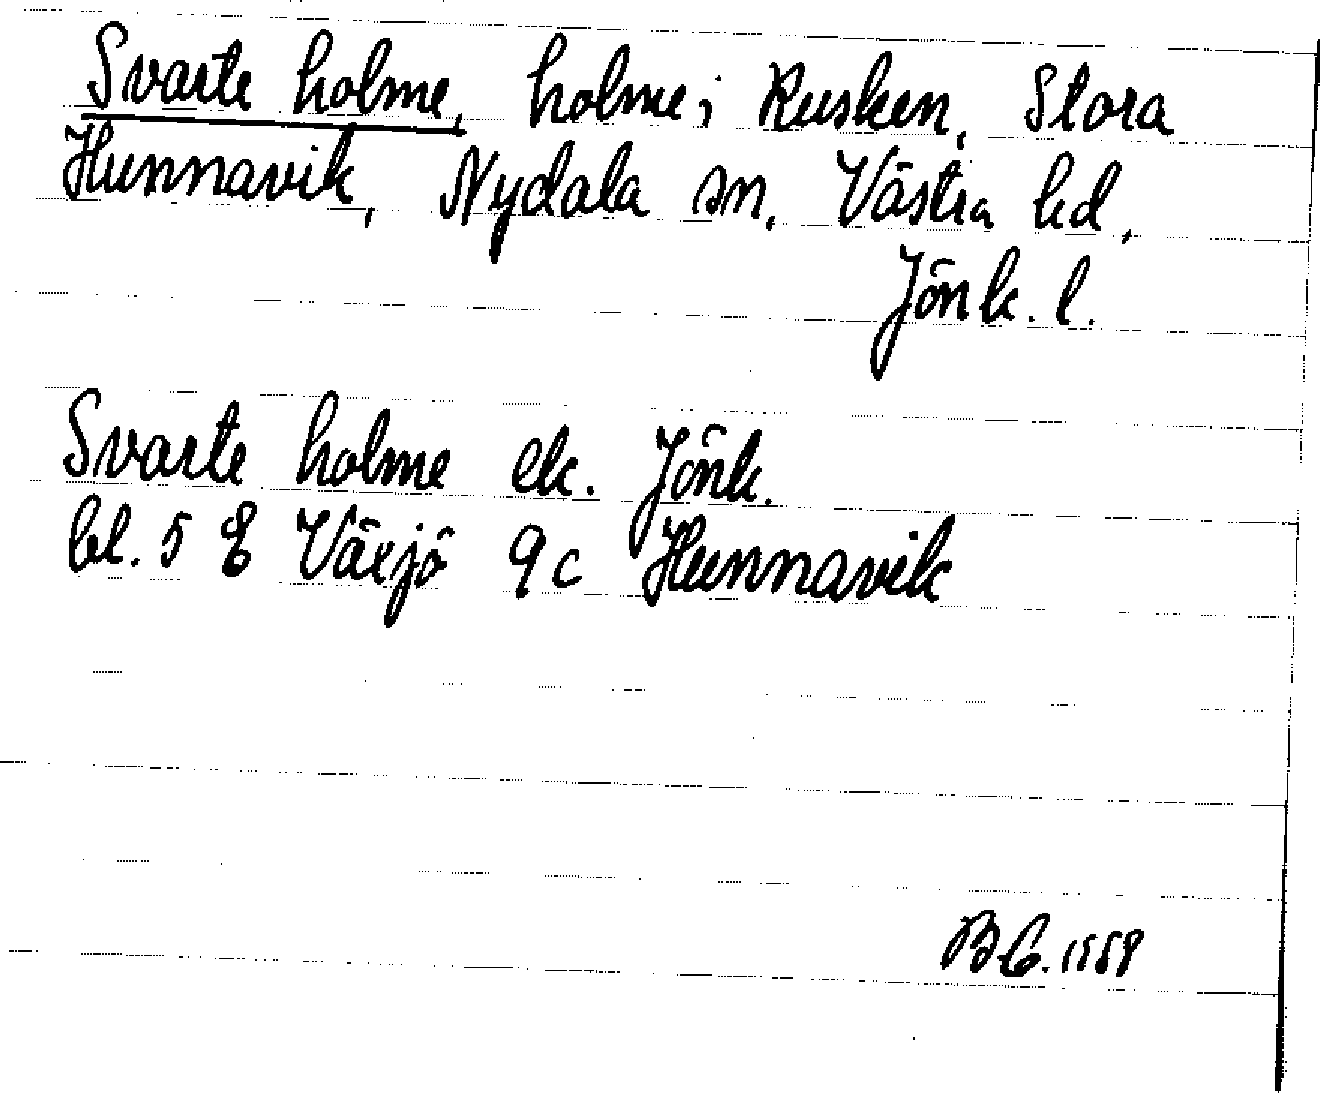 Svarte holme, holme i Rusken, Stora
Hunnavik, Nydala sn, Västra hd,
Jönk. l.
Svarte holme ek. Jönk.
bl. 5 E Växjö 9c Hunnavik
B.C. 1959